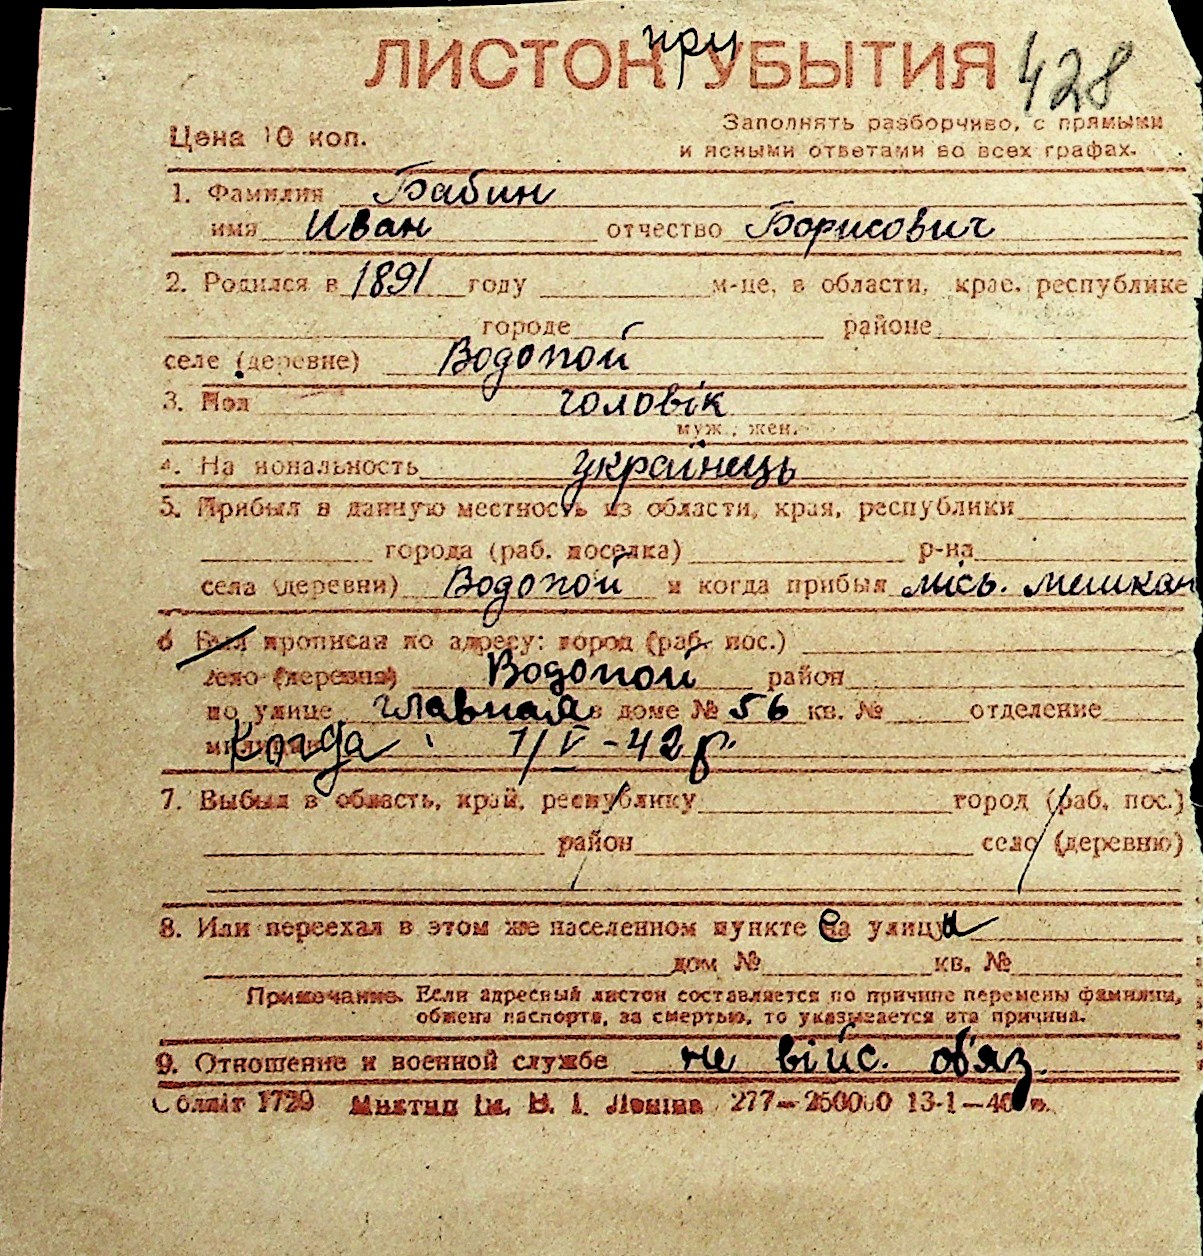 ЛИСТОК при УБЫТИЯ 428
Цена 10 коп.
Заполнять разборчиво, с прямыми
и ясными ответами во всех графах.
1. Фамилия Бабин
имя Иван отчество Борисович
2. Родился в 1891 году м-це, в области, крае, республике
городе районе
селе (деревне) Водопой
3. Пол чоловік
муж., жен.
4. Национальность українець
5. Прибыл в данную местность из области, края, республики
города (раб. поселка) р-на
села (деревни) Водопой и когда прибыл місь. мешкан
6 Был прописан по адресу: город (раб. пос.)
село (деревня) Водопой район
по улице главная в доме № 56 кв. № отделение
милиции Когда 1/V-42 р.
7. Выбыл в область, край, республику город (раб. пос.)
район село (деревню)
8. Или переехал в этом же населенном пункте с улицы
дом № кв. №
Примечание. Если адресный листок составляется по причине перемены фамилии,
обмена паспорта, за смертью, то указывается эта причина.
9. Отношение к военной службе не війс. об'яз.
Обліт 1729 Миктип ім. В. І. Леніна 277—250000 13-1—40 р.